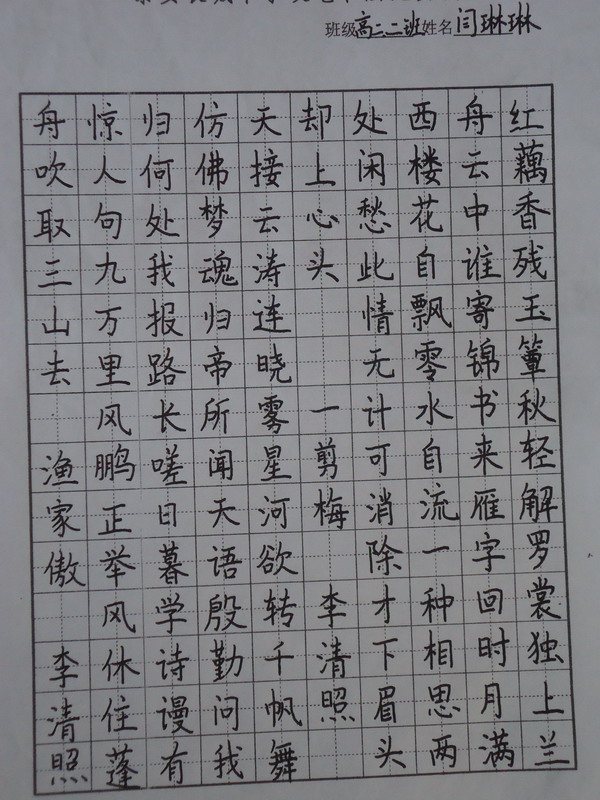 班级高二.二班姓名闫琳琳
红藕香残玉簟秋轻解罗裳独上兰
舟云中谁寄锦书来雁字回时月满
西楼花自飘零水自流一种相思两
处闲愁此情无计可消除才下眉头
却上心头 一剪梅 李清照
天接云涛连晓雾星河欲转千帆舞
仿佛梦魂归帝所闻天语殷勤问我
归何处我报路长嗟日暮学诗谩有
惊人句九万里风鹏正举风休住蓬
舟吹取三山去 渔家傲 李清照